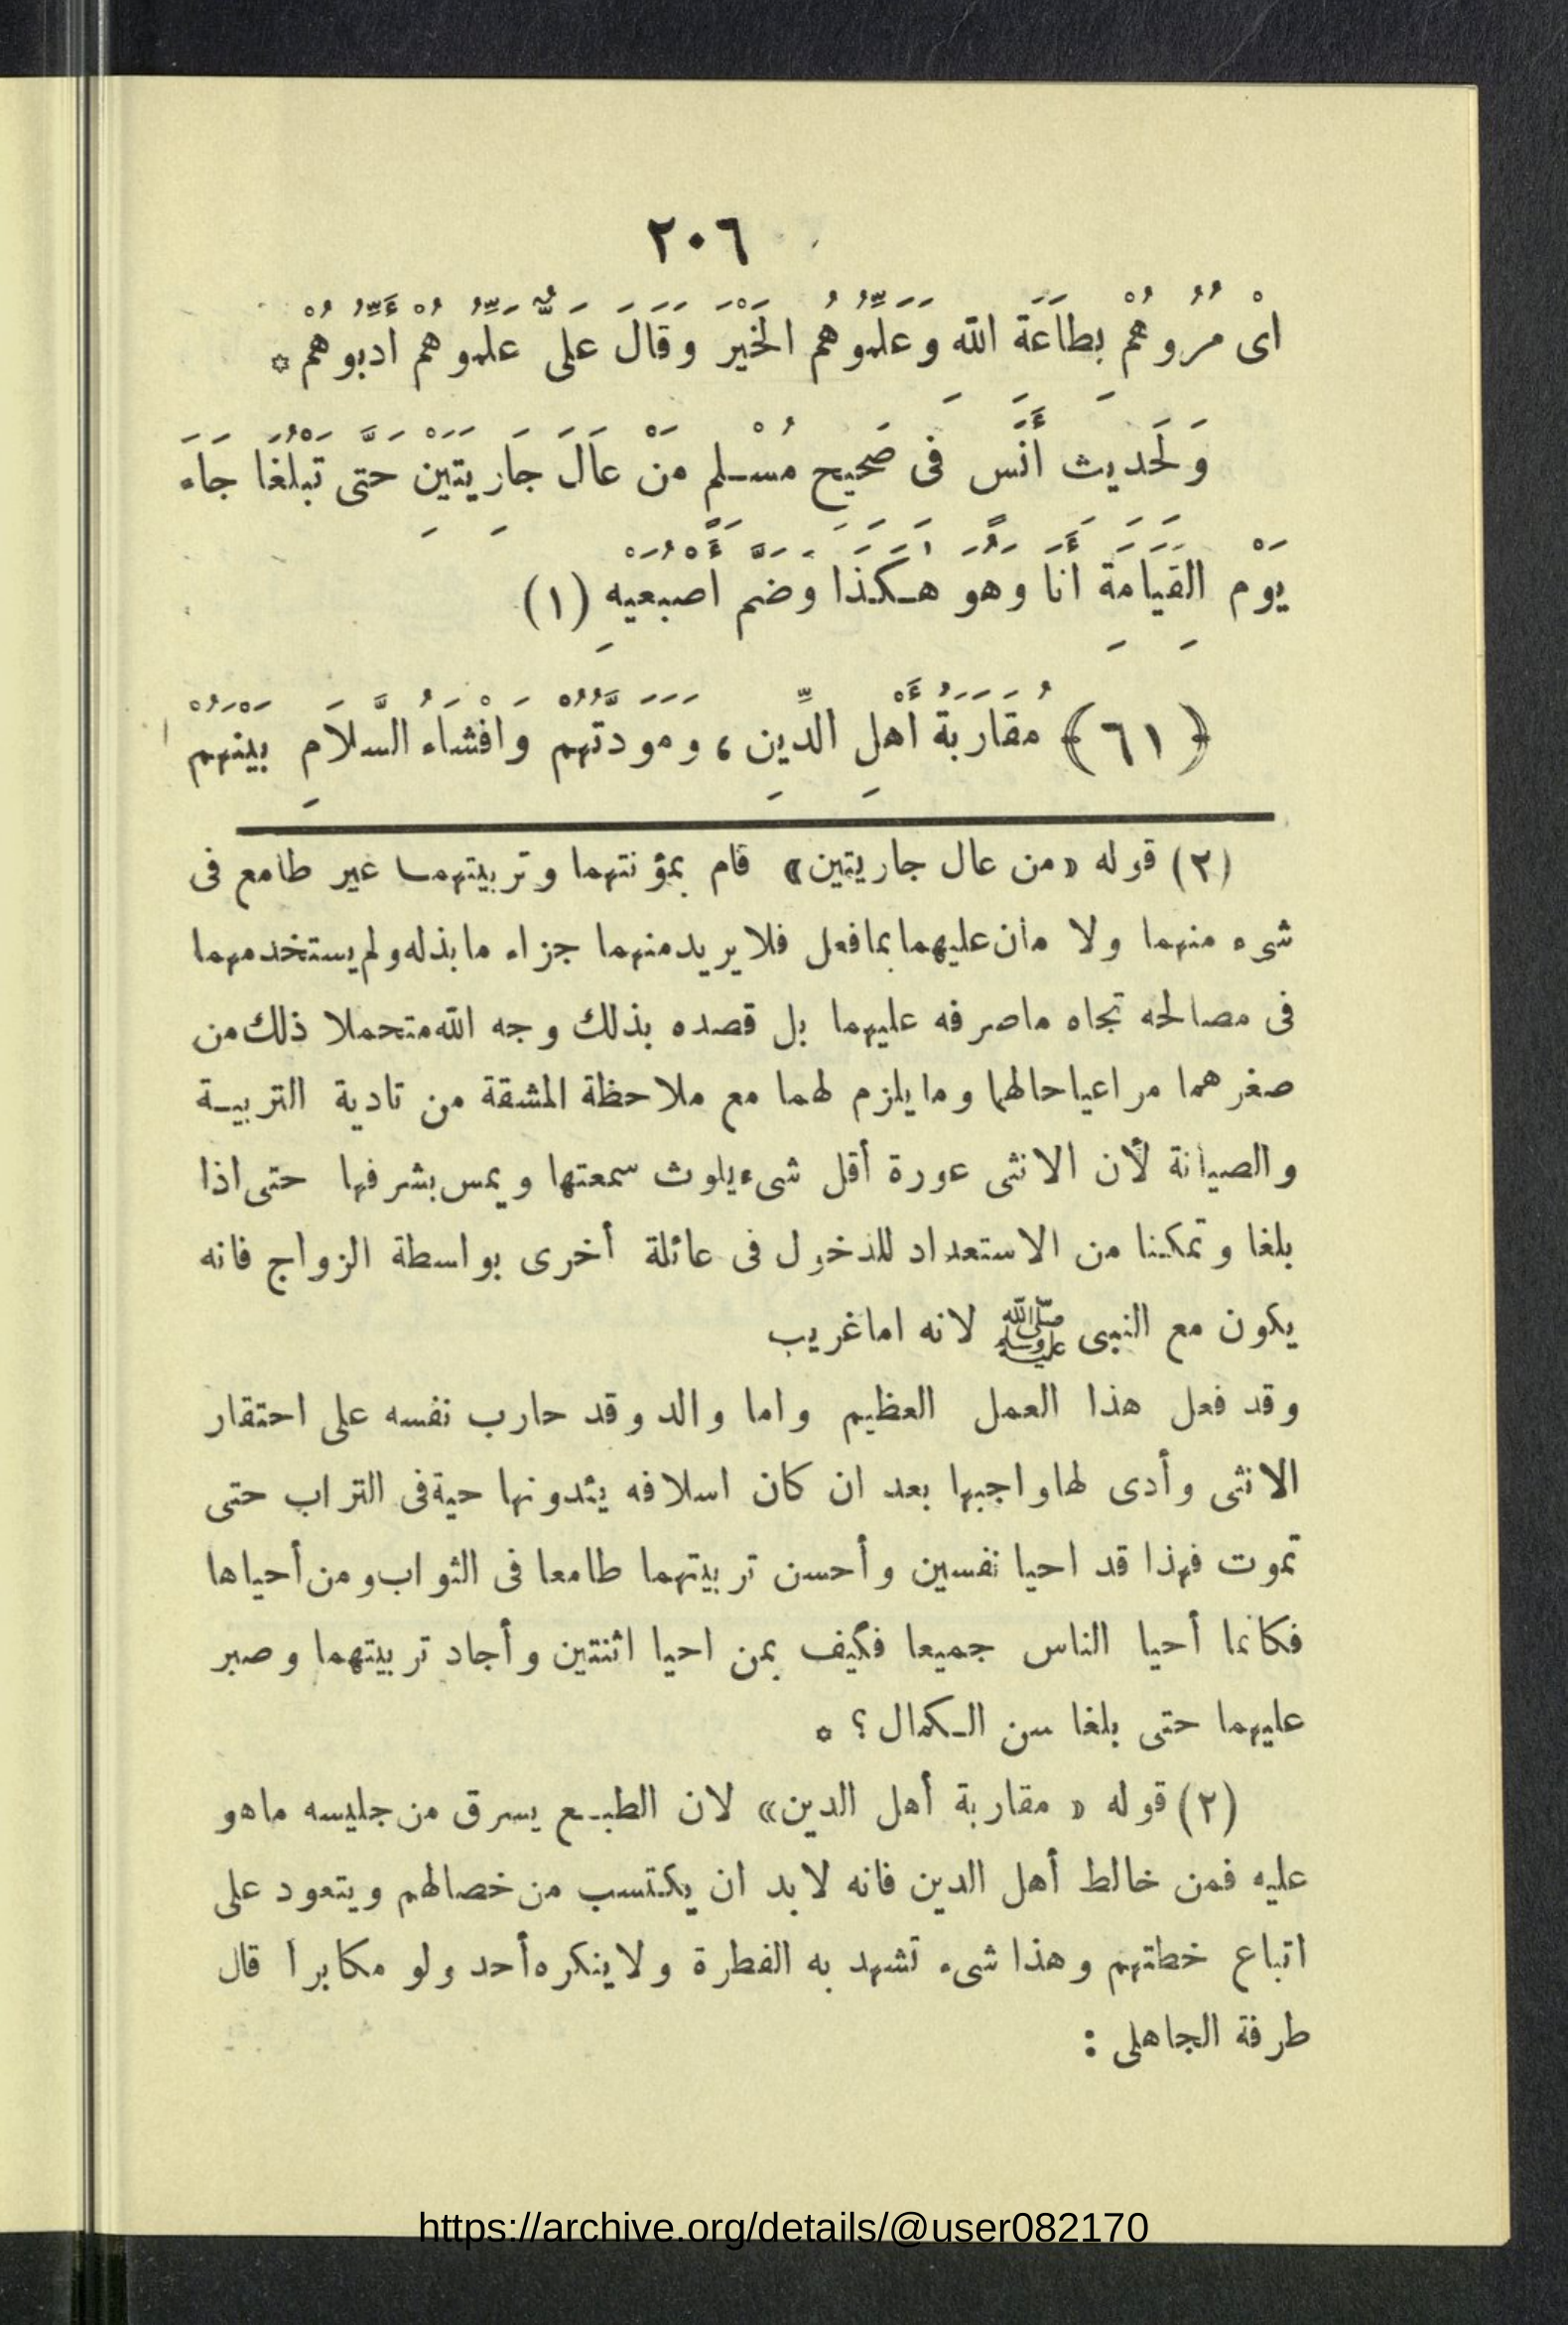 ٢٠٦
اىْ مُرُوهُمْ بِطَاعَةِ اللهِ وَعَلِّمُوهُمُ الخَيْرَ وَقَالَ عَلىٌّ عَلِّمُوهُمْ أَدِّبُوهُمْ *
وَلَحَدِيث أَنَس فى صَحيح مُسْلم مَنْ عَالَ جَارِيَتَيْنِ حَتَّى تَبْلُغَا جَاءَ
يَوْم القِيَامَةِ أَنَا وهوَ هكَذَا وَضَمَّ أُصْبُعَيْهِ (١)
﴿٦١﴾ مُقَارَبَةُ أَهْلِ الدِّينِ، ومَوَدَّتُهُمْ وَافْشَاءُ السَّلاَمِ بَيْنَهُمْ
(٢) قوله «من عال جاريتين» قام بمؤنتهما وتربيتهما غير طامع فى
شىء منهما ولا مان عليهما بما فعل فلا يريد منهما جزاء ما بذله ولم يستخدمهما
فى مصالحه تجاه ماصرفه عليهما بل قصده بذلك وجه الله متحملا ذلك من
صغرهما مراعيا حالهما وما يلزم لهما مع ملاحظة المشقة من تادية التربيـة
والصيانة لأن الانثى عورة أقل شىء يلوث سمعتها ويمس بشرفها حتى اذا
بلغا وتمكنا من الاستعداد للدخول فى عائلة أخرى بواسطة الزواج فانه
يكون مع النبى ﷺ لانه اما غريب
وقد فعل هذا العمل العظيم واما والد وقد حارب نفسه على احتقار
الانثى وأدى لها واجبها بعد ان كان اسلافه يئدونها حية فى التراب حتى
تموت فهذا قد احيا نفسين وأحسن تربيتهما طامعا فى الثواب ومن أحياها
فكانما أحيا الناس جميعا فكيف بمن احيا اثنتين وأجاد تربيتهما وصبر
عليهما حتى بلغا سن الـكمال ؟ *
(٢) قوله « مقاربة أهل الدين» لان الطبـع يسرق من جليسه ماهو
عليه فمن خالط أهل الدين فانه لابد ان يكتسب من خصالهم ويتعود على
اتباع خطتهم وهذا شىء تشهد به الفطرة ولا ينكره أحد ولو مكابرا قال
طرفة الجاهلى :
https://archive.org/details/@user082170